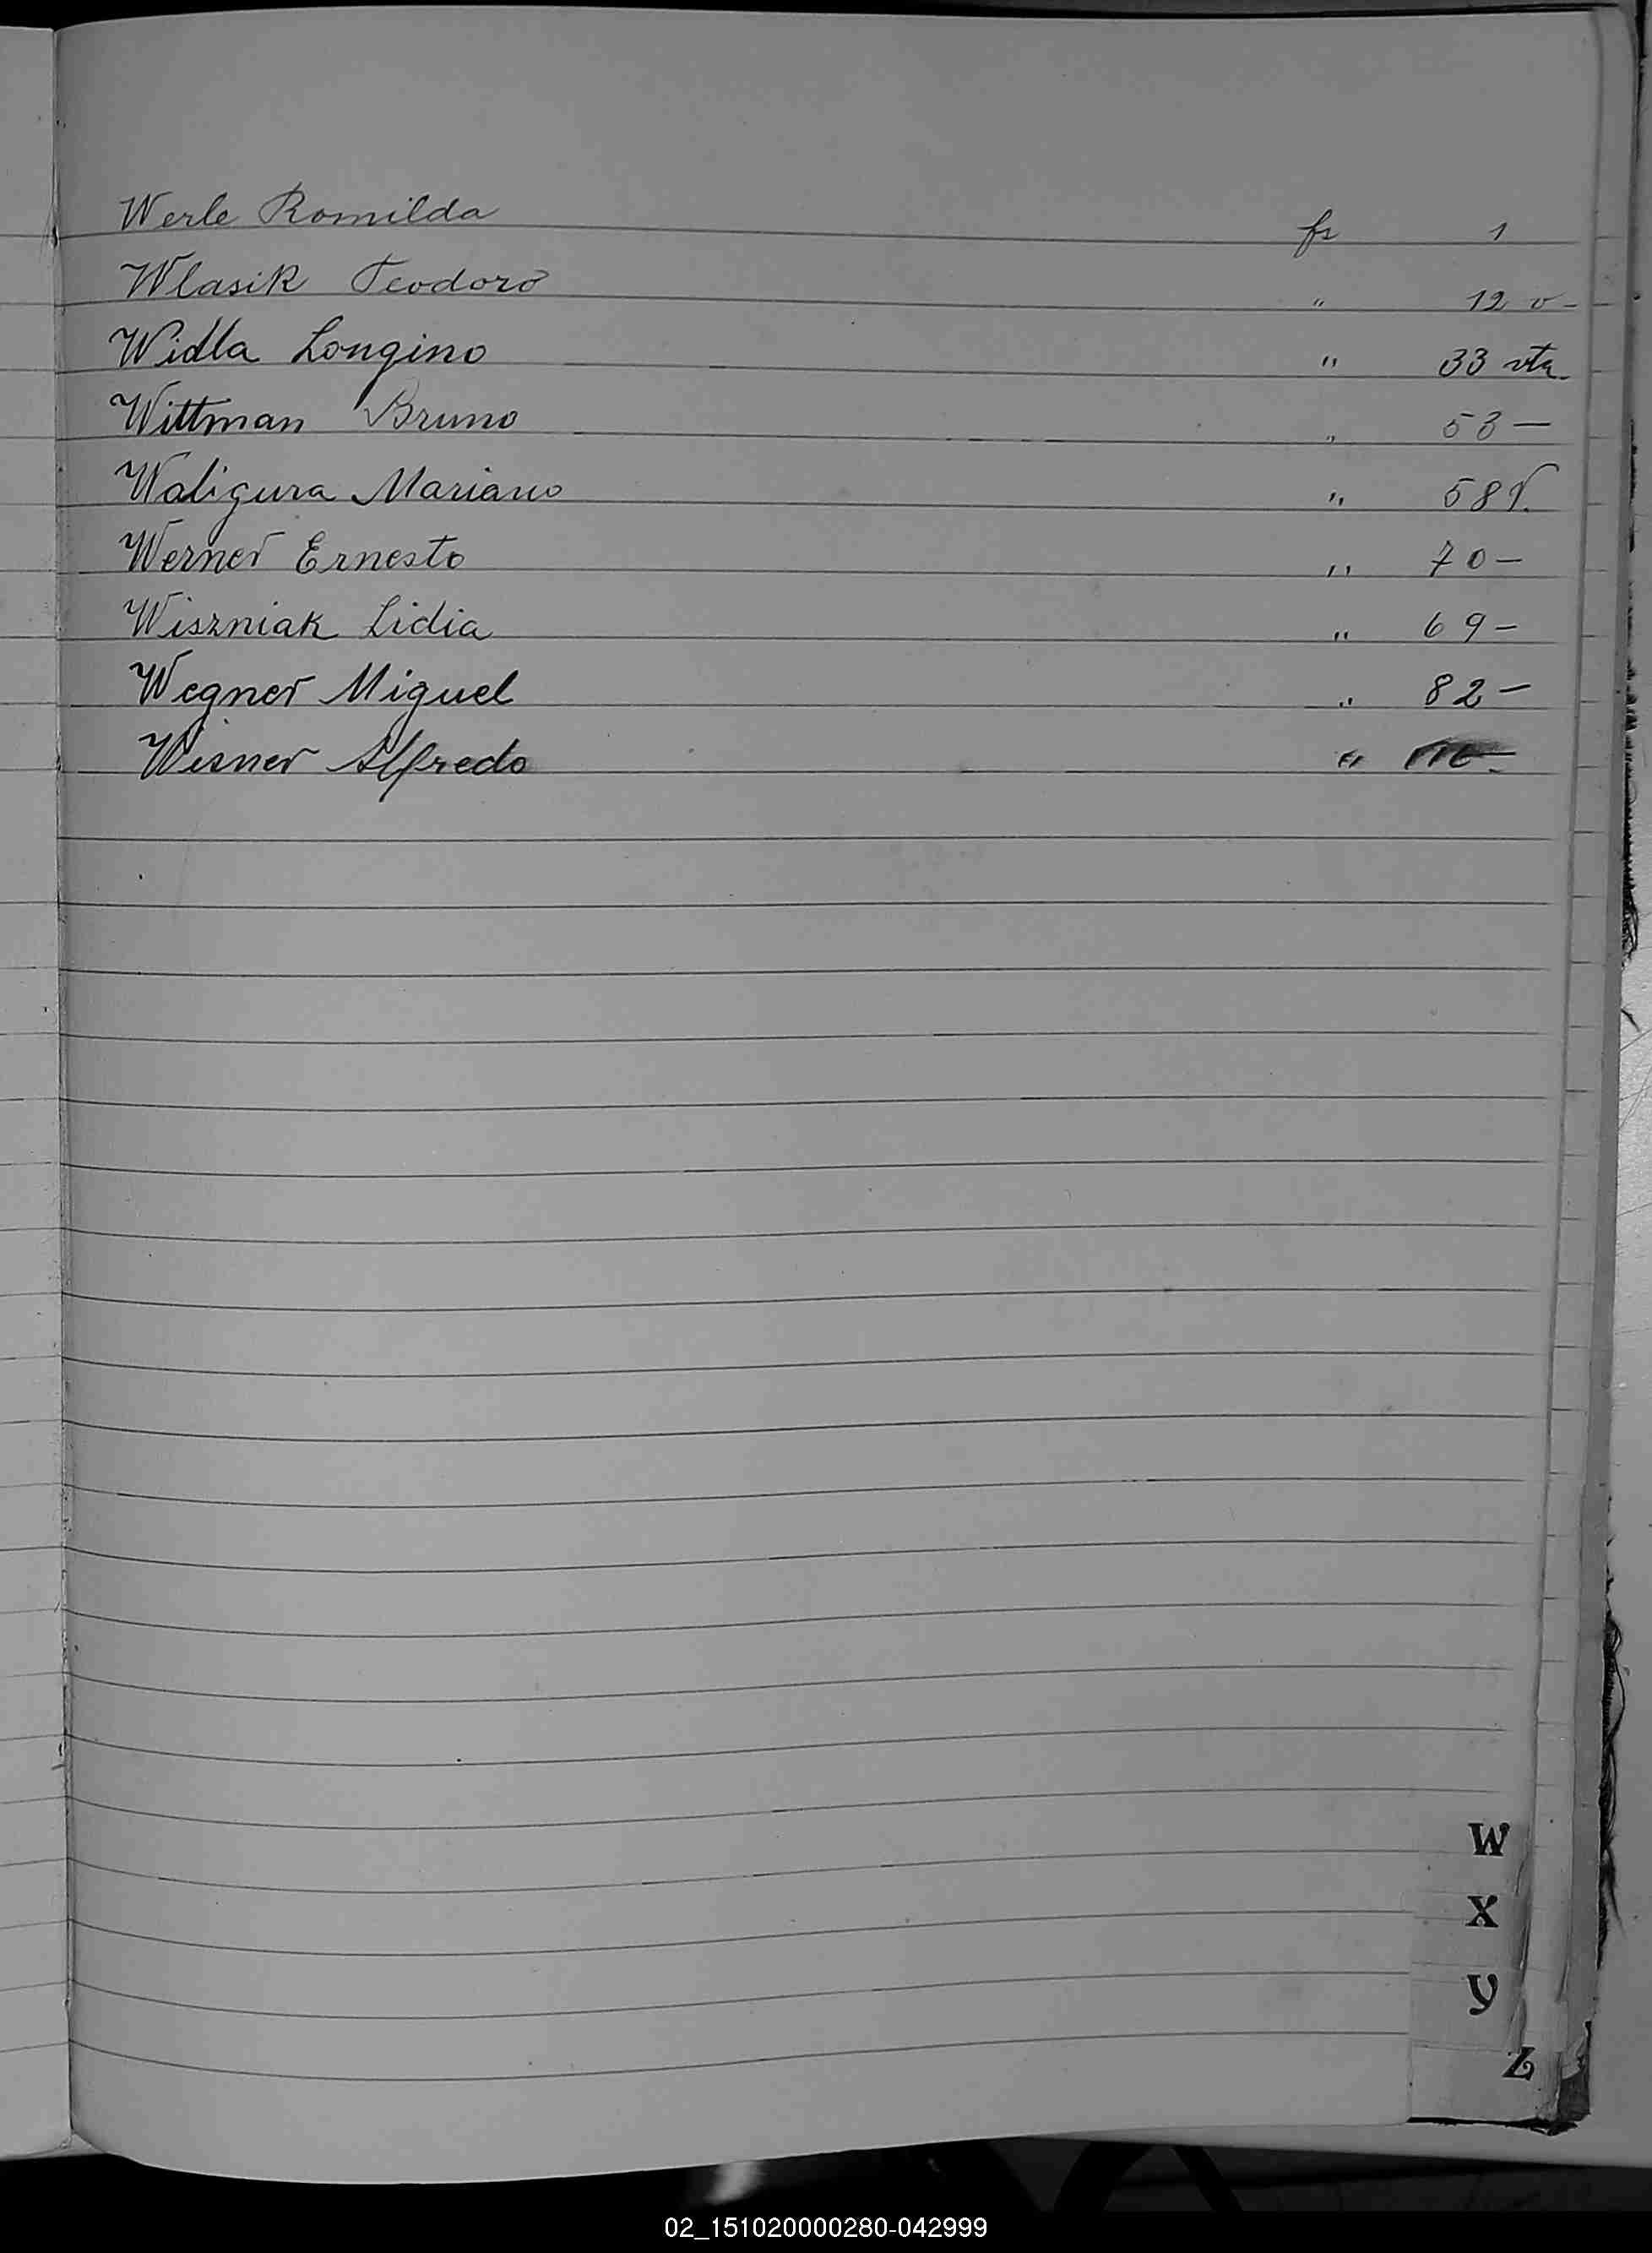 Werle Romilda fs 1
Wlasik Teodoro " 12 v-
Widla Longino " 33 vta.
Wittman Bruno " 53 —
Waligura Mariano " 58 v.
Werner Ernesto " 70 —
Wiszniak Lidia " 69 —
Wegner Miguel " 82 —
Wisner Alfredo "
W
X
Y
Z
02_151020000280-042999